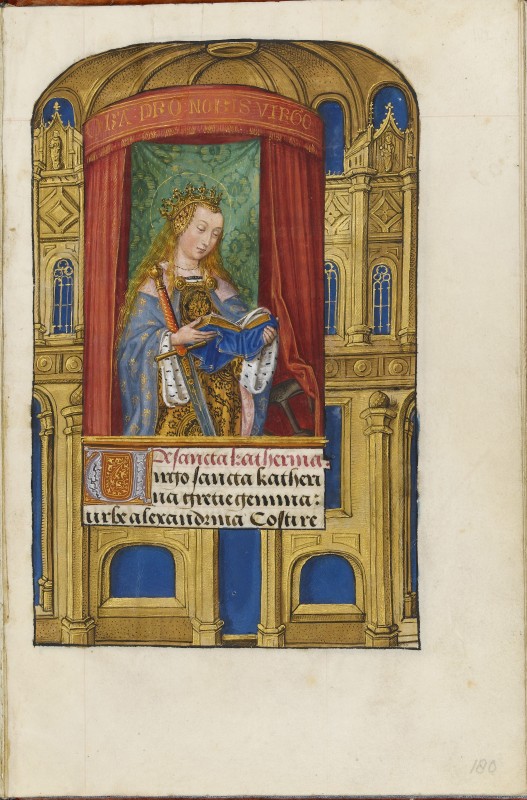 ORA PRO NOBIS VIRGO
De sancta katherina.
Virgo sancta katheri
na gretie gemma:
urbe alexandrina Costi re
180